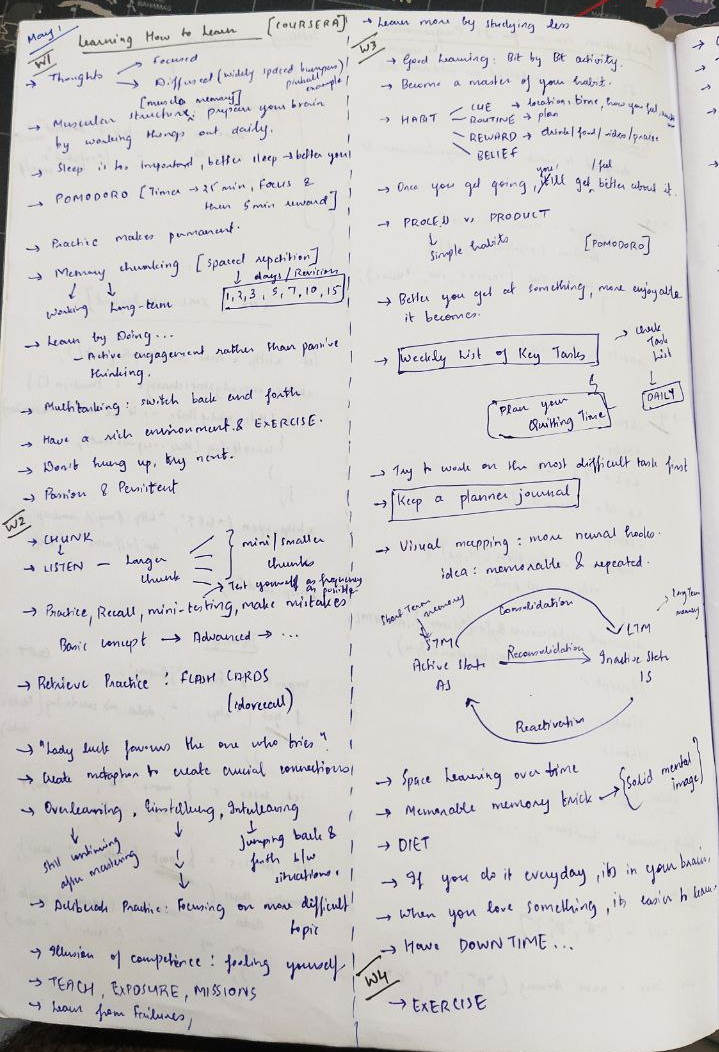 May 1
Learning How to Learn [COURSERA]
W1
→ Thoughts → Focused
→ Diffused (widely spaced bumpers) / pinball example
[muscle memory]
→ Muscular structure, prepare your brain
by working things out daily.
→ Sleep is too important, better sleep → better you
→ POMODORO [Timer → 25 min, Focus &
then 5 min reward]
→ Practice makes permanent.
→ Memory chunking [spaced repetition]
↓ days / Revision
working Long-term
1, 2, 3, 5, 7, 10, 15
→ Learn by Doing...
- Active engagement rather than passive
thinking.
→ Multitasking: switch back and forth
→ Have a rich environment & EXERCISE.
→ Don't hung up, try next.
→ Passion & Persistent
W2
→ CHUNK
↓
→ LISTEN - Larger chunk
mini/smaller
chunks
→ Test yourself as frequency
as possible.
→ Practice, Recall, mini-testing, make mistakes
Basic concept → Advanced → ...
→ Retrieve Practice: FLASH CARDS
→ "Lady luck favours the one who tries".
→ Create metaphor to create crucial connections
→ Overlearning, Einstellung, Interleaving
still continuing
after mastering
Jumping back &
forth b/w
situations.
→ Deliberate Practice: Focusing on more difficult
topic
→ Illusion of competence: fooling yourself
→ TEACH, EXPOSURE, MISSIONS
→ Learn from Failures,
→ Learn more by studying less
W3
→ Good Learning: Bit by Bit activity.
→ Become a master of your habit.
→ HABIT
CUE → location, time, how you feel,
ROUTINE → plan
REWARD → drink/food/video/praise
BELIEF
→ Once you get going, you'll get / feel better about it.
→ PROCESS vs PRODUCT
↓
simple habits [POMODORO]
→ Better you get at something, more enjoyable
it becomes.
→ Weekly List of Key Tasks
→ check
Task
List
↓
DAILY
Plan your
Quitting Time
→ Try to work on the most difficult task first
→ Keep a planner journal
→ Visual mapping: more neural hooks.
idea: memorable & repeated.
Short Term
memory
Consolidation
Long Term
memory
STM
LTM
Active State
Reconsolidation
Inactive State
AS
IS
Reactivation
→ Space Learning over time
→ Memorable memory trick → {Solid mental
image}
→ DIET
→ If you do it everyday, its in your brain.
→ When you love something, its easier to learn.
→ Have DOWN TIME...
W4
→ EXERCISE